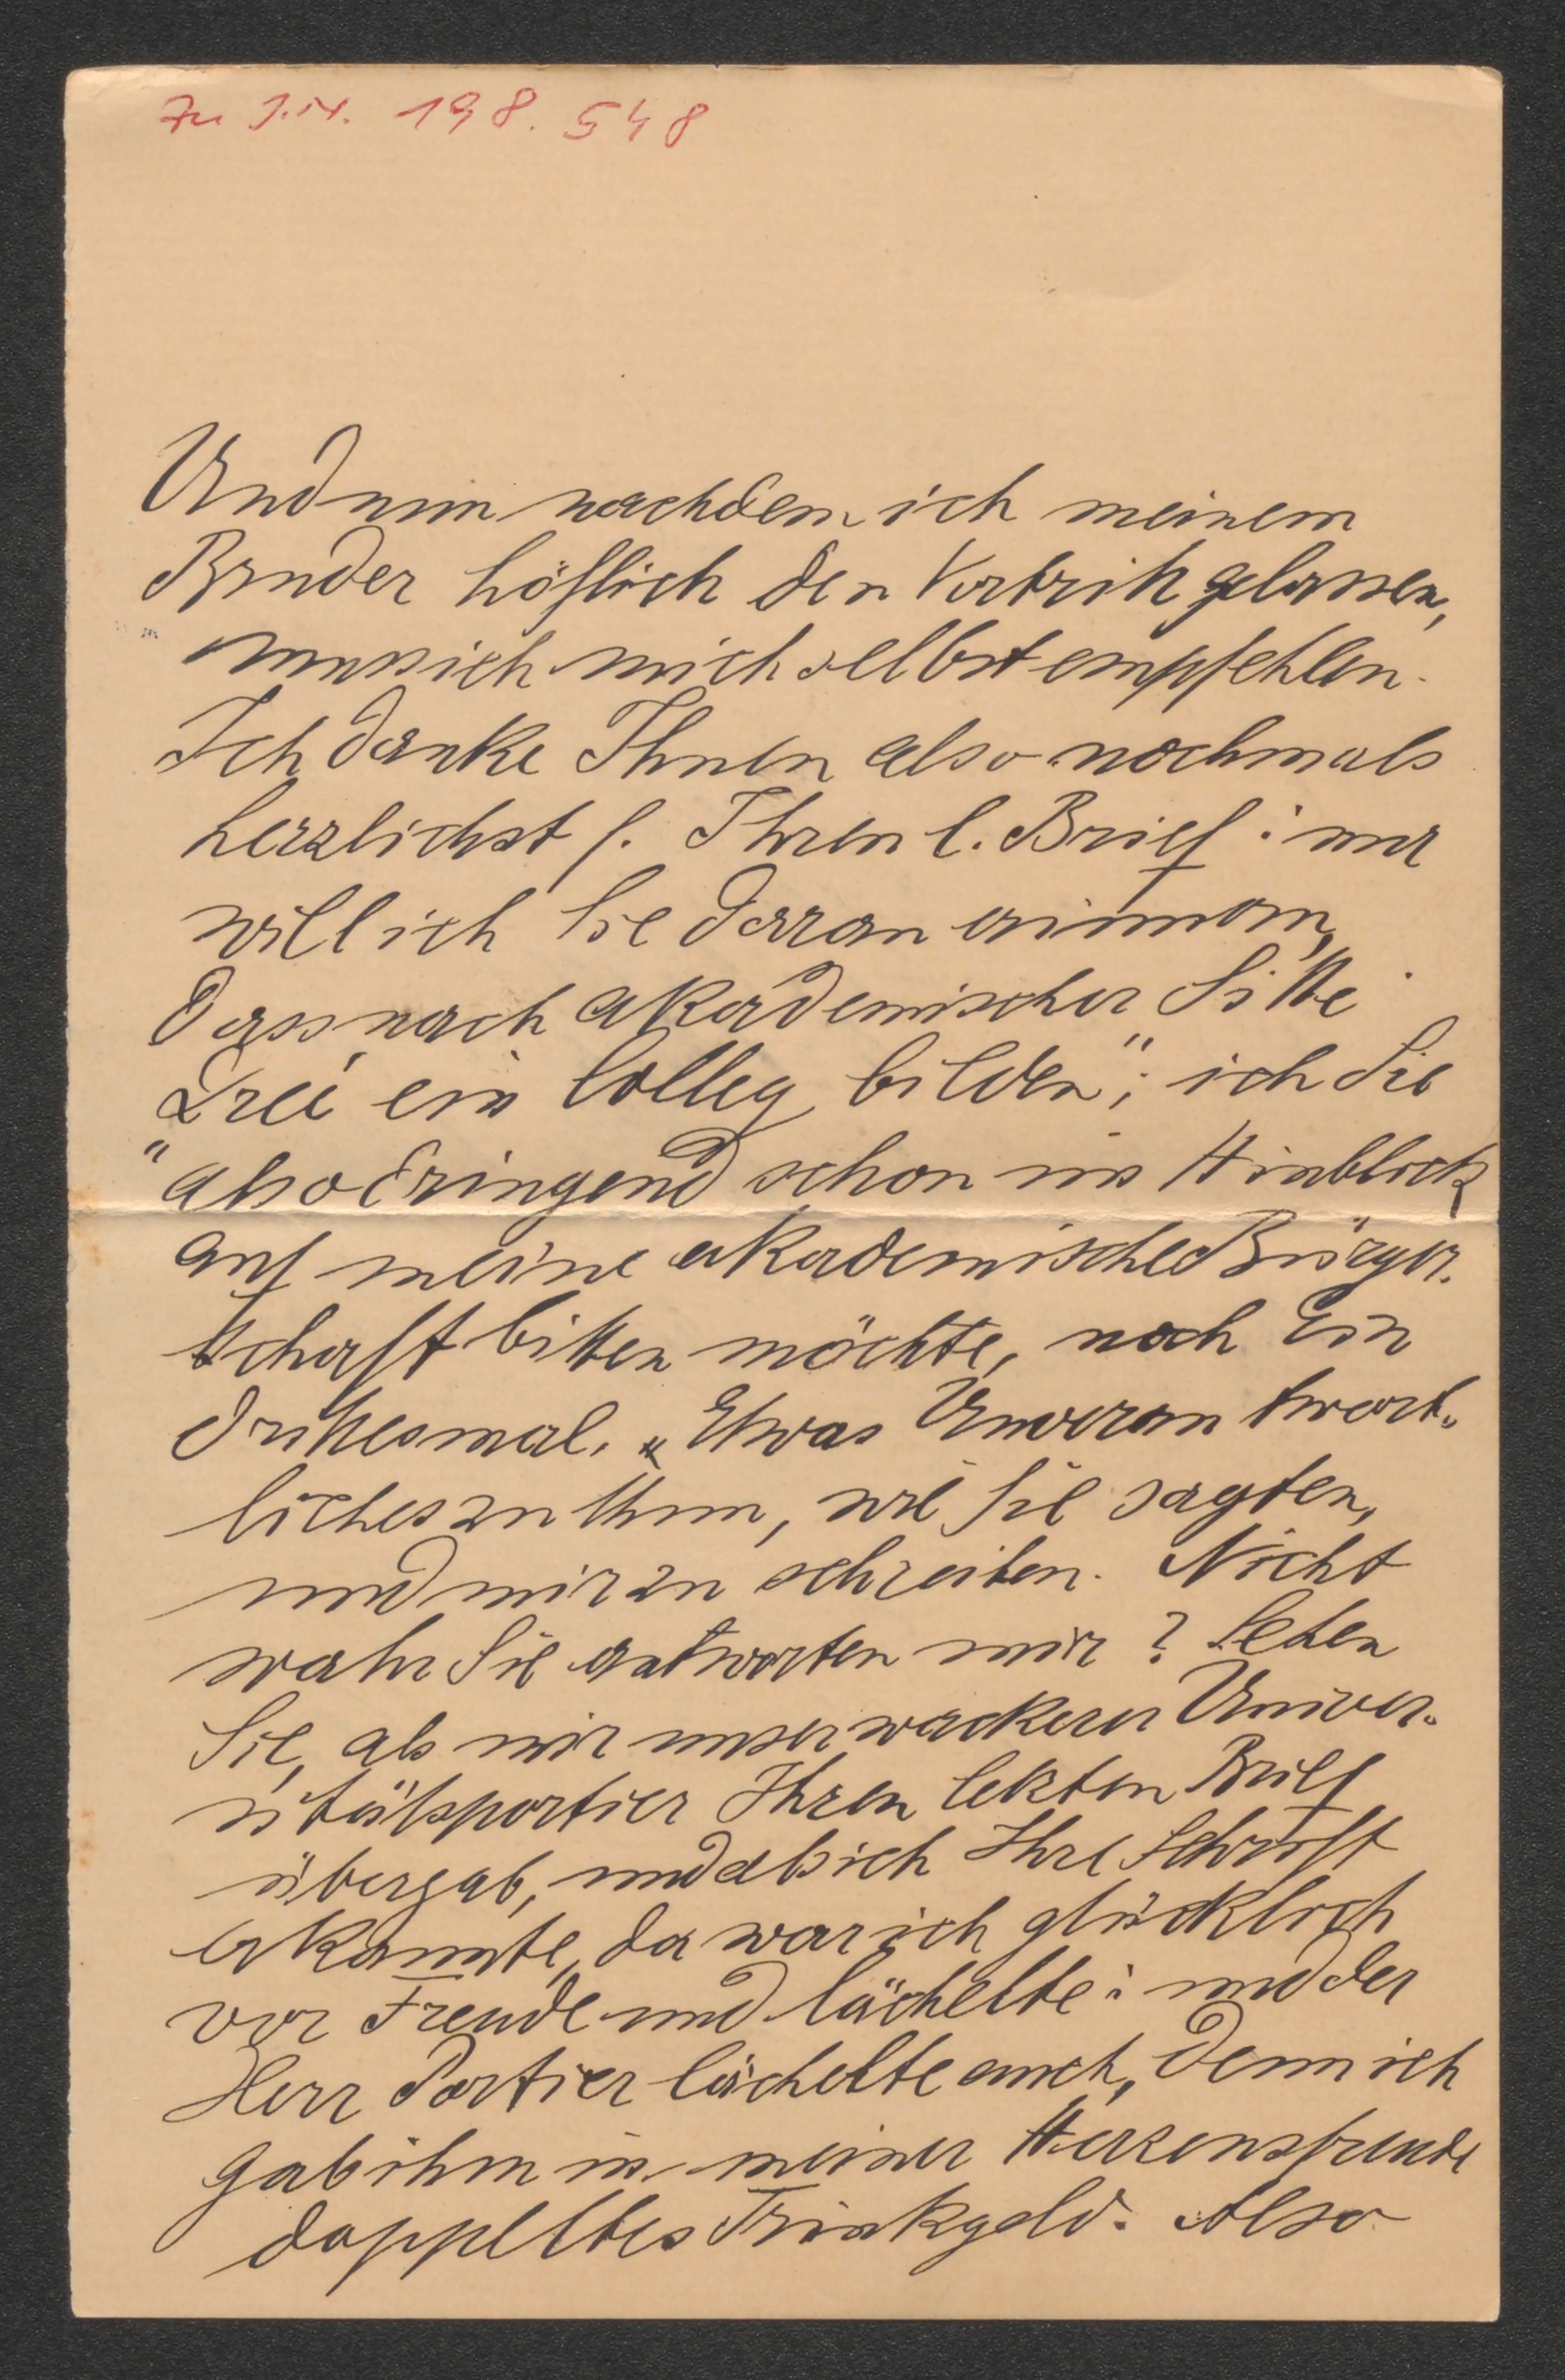 Zu J.N. 198.548
Und nun nachdem ich meinem
Bruder höflich den Vortritt gelassen,
muss ich mich selbst empfehlen.
Ich danke Ihnen also nochmals
herzlichst f. Ihren l. Brief: nur
will ich Sie daran erinnern,
dass nach akademischer Sitte
„Drei ein Colleg bilden“; ich Sie
also dringend schon im Hinblick
auf meine akademische Bürger-
schaft bitten möchte, noch Ein
drittesmal. „Etwas Unverantwort-
liches zu thun, wie Sie sagten,
und mir zu schreiben. Nicht
wahr Sie antworten mir? Sehen
Sie, als mir unser wackerer Univer-
sitätsportier Ihren letzten Brief
übergab, und als ich Ihre Schrift
erkannte, da war ich glücklich
vor Freude und lächelte: und der
Herr Portier lächelte auch, denn ich
gab ihm in meiner Herzensfreude
doppeltes Trinkgeld. Also